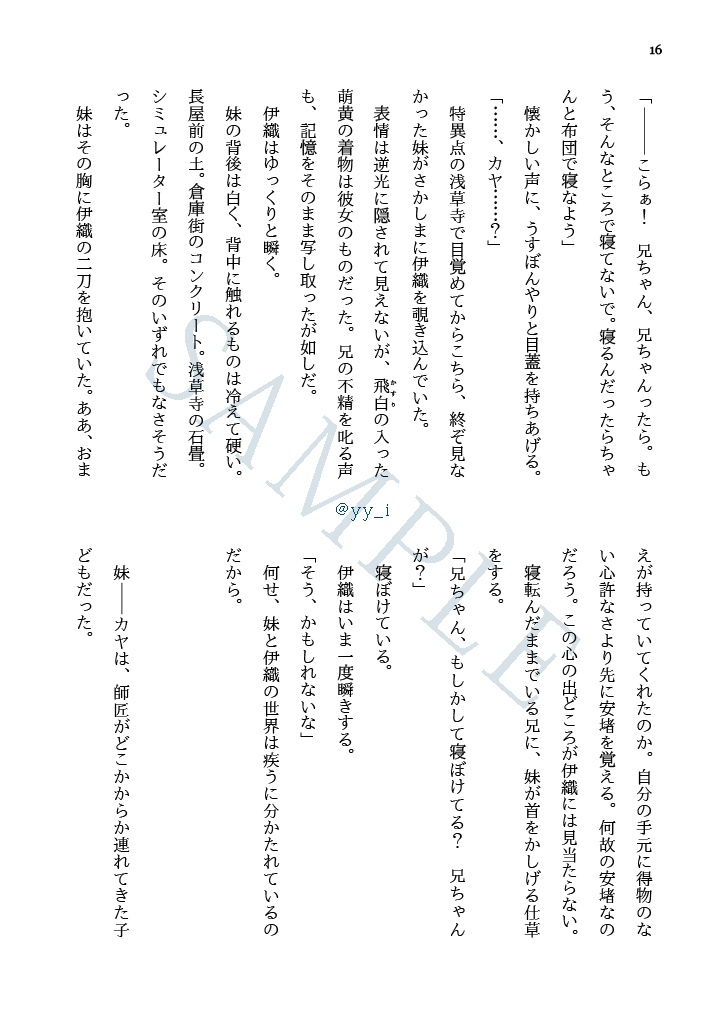 16
「――こらぁ！　兄ちゃん、兄ちゃんったら。も
う、そんなところで寝てないで。寝るんだったらちゃ
んと布団で寝なよう」
　懐かしい声に、うすぼんやりと目蓋を持ちあげる。
「……、カヤ……？」
　特異点の浅草寺で目覚めてからこちら、終ぞ見な
かった妹がさかしまに伊織を覗き込んでいた。
　表情は逆光に隠されて見えないが、飛白の入った
かすり
萌黄の着物は彼女のものだった。兄の不精を叱る声
も、記憶をそのまま写し取ったが如しだ。
　伊織はゆっくりと瞬く。
　妹の背後は白く、背中に触れるものは冷えて硬い。
長屋前の土。倉庫街のコンクリート。浅草寺の石畳。
シミュレーター室の床。そのいずれでもなさそうだ
った。
　妹はその胸に伊織の二刀を抱いていた。ああ、おま
えが持っていてくれたのか。自分の手元に得物のな
い心許なさより先に安堵を覚える。何故の安堵なの
だろう。この心の出どころが伊織には見当たらない。
　寝転んだままでいる兄に、妹が首をかしげる仕草
をする。
「兄ちゃん、もしかして寝ぼけてる？　兄ちゃん
が？」
　寝ぼけている。
　伊織はいま一度瞬きする。
「そう、かもしれないな」
　何せ、妹と伊織の世界は疾うに分かたれているの
だから。
　妹――カヤは、師匠がどこかからか連れてきた子
どもだった。
SAMPLE
@yy_i